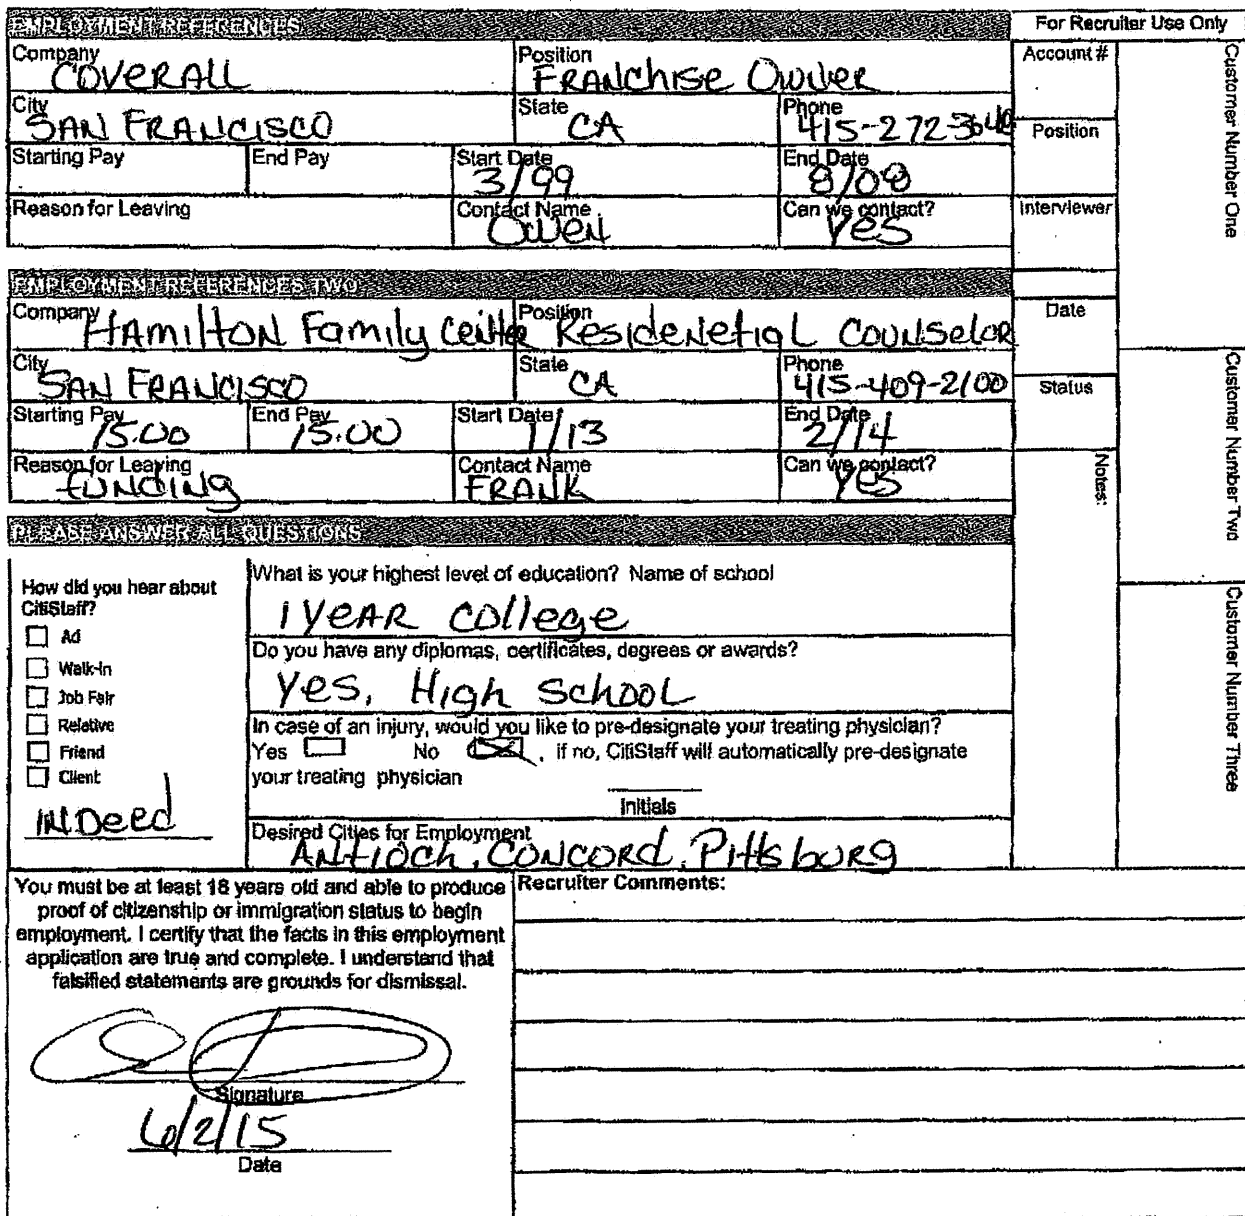 EMPLOYMENT REFERENCES
For Recruiter Use Only
Company
COVERALL
Position
FRANCHISE OWNER
City
SAN FRANCISCO
State
CA
Phone
415-272-3640
Starting Pay
End Pay
Start Date
3/99
End Date
8/08
Reason for Leaving
Contact Name
OWEN
Can we contact?
Yes
Account #
Position
Interviewer
Date
Status
Notes:
Customer Number One
Customer Number Two
Customer Number Three
EMPLOYMENT REFERENCES TWO
Company
HAMILTON Family Center
Position
Residenetial Counselor
City
SAN FRANCISCO
State
CA
Phone
415-409-2100
Starting Pay
15.00
End Pay
15.00
Start Date
1/13
End Date
2/14
Reason for Leaving
funding
Contact Name
FRANK
Can we contact?
Yes
PLEASE ANSWER ALL QUESTIONS
How did you hear about
CitiStaff?
Ad
Walk-In
Job Fair
Relative
Friend
Client
INDeed
What is your highest level of education? Name of school
1 YEAR College
Do you have any diplomas, certificates, degrees or awards?
Yes, High School
In case of an injury, would you like to pre-designate your treating physician?
Yes No , if no, CitiStaff will automatically pre-designate
your treating physician
Initials
Desired Cities for Employment
Antioch, Concord, Pittsburg
You must be at least 18 years old and able to produce
proof of citizenship or immigration status to begin
employment. I certify that the facts in this employment
application are true and complete. I understand that
falsified statements are grounds for dismissal.
Signature
6/2/15
Date
Recruiter Comments: